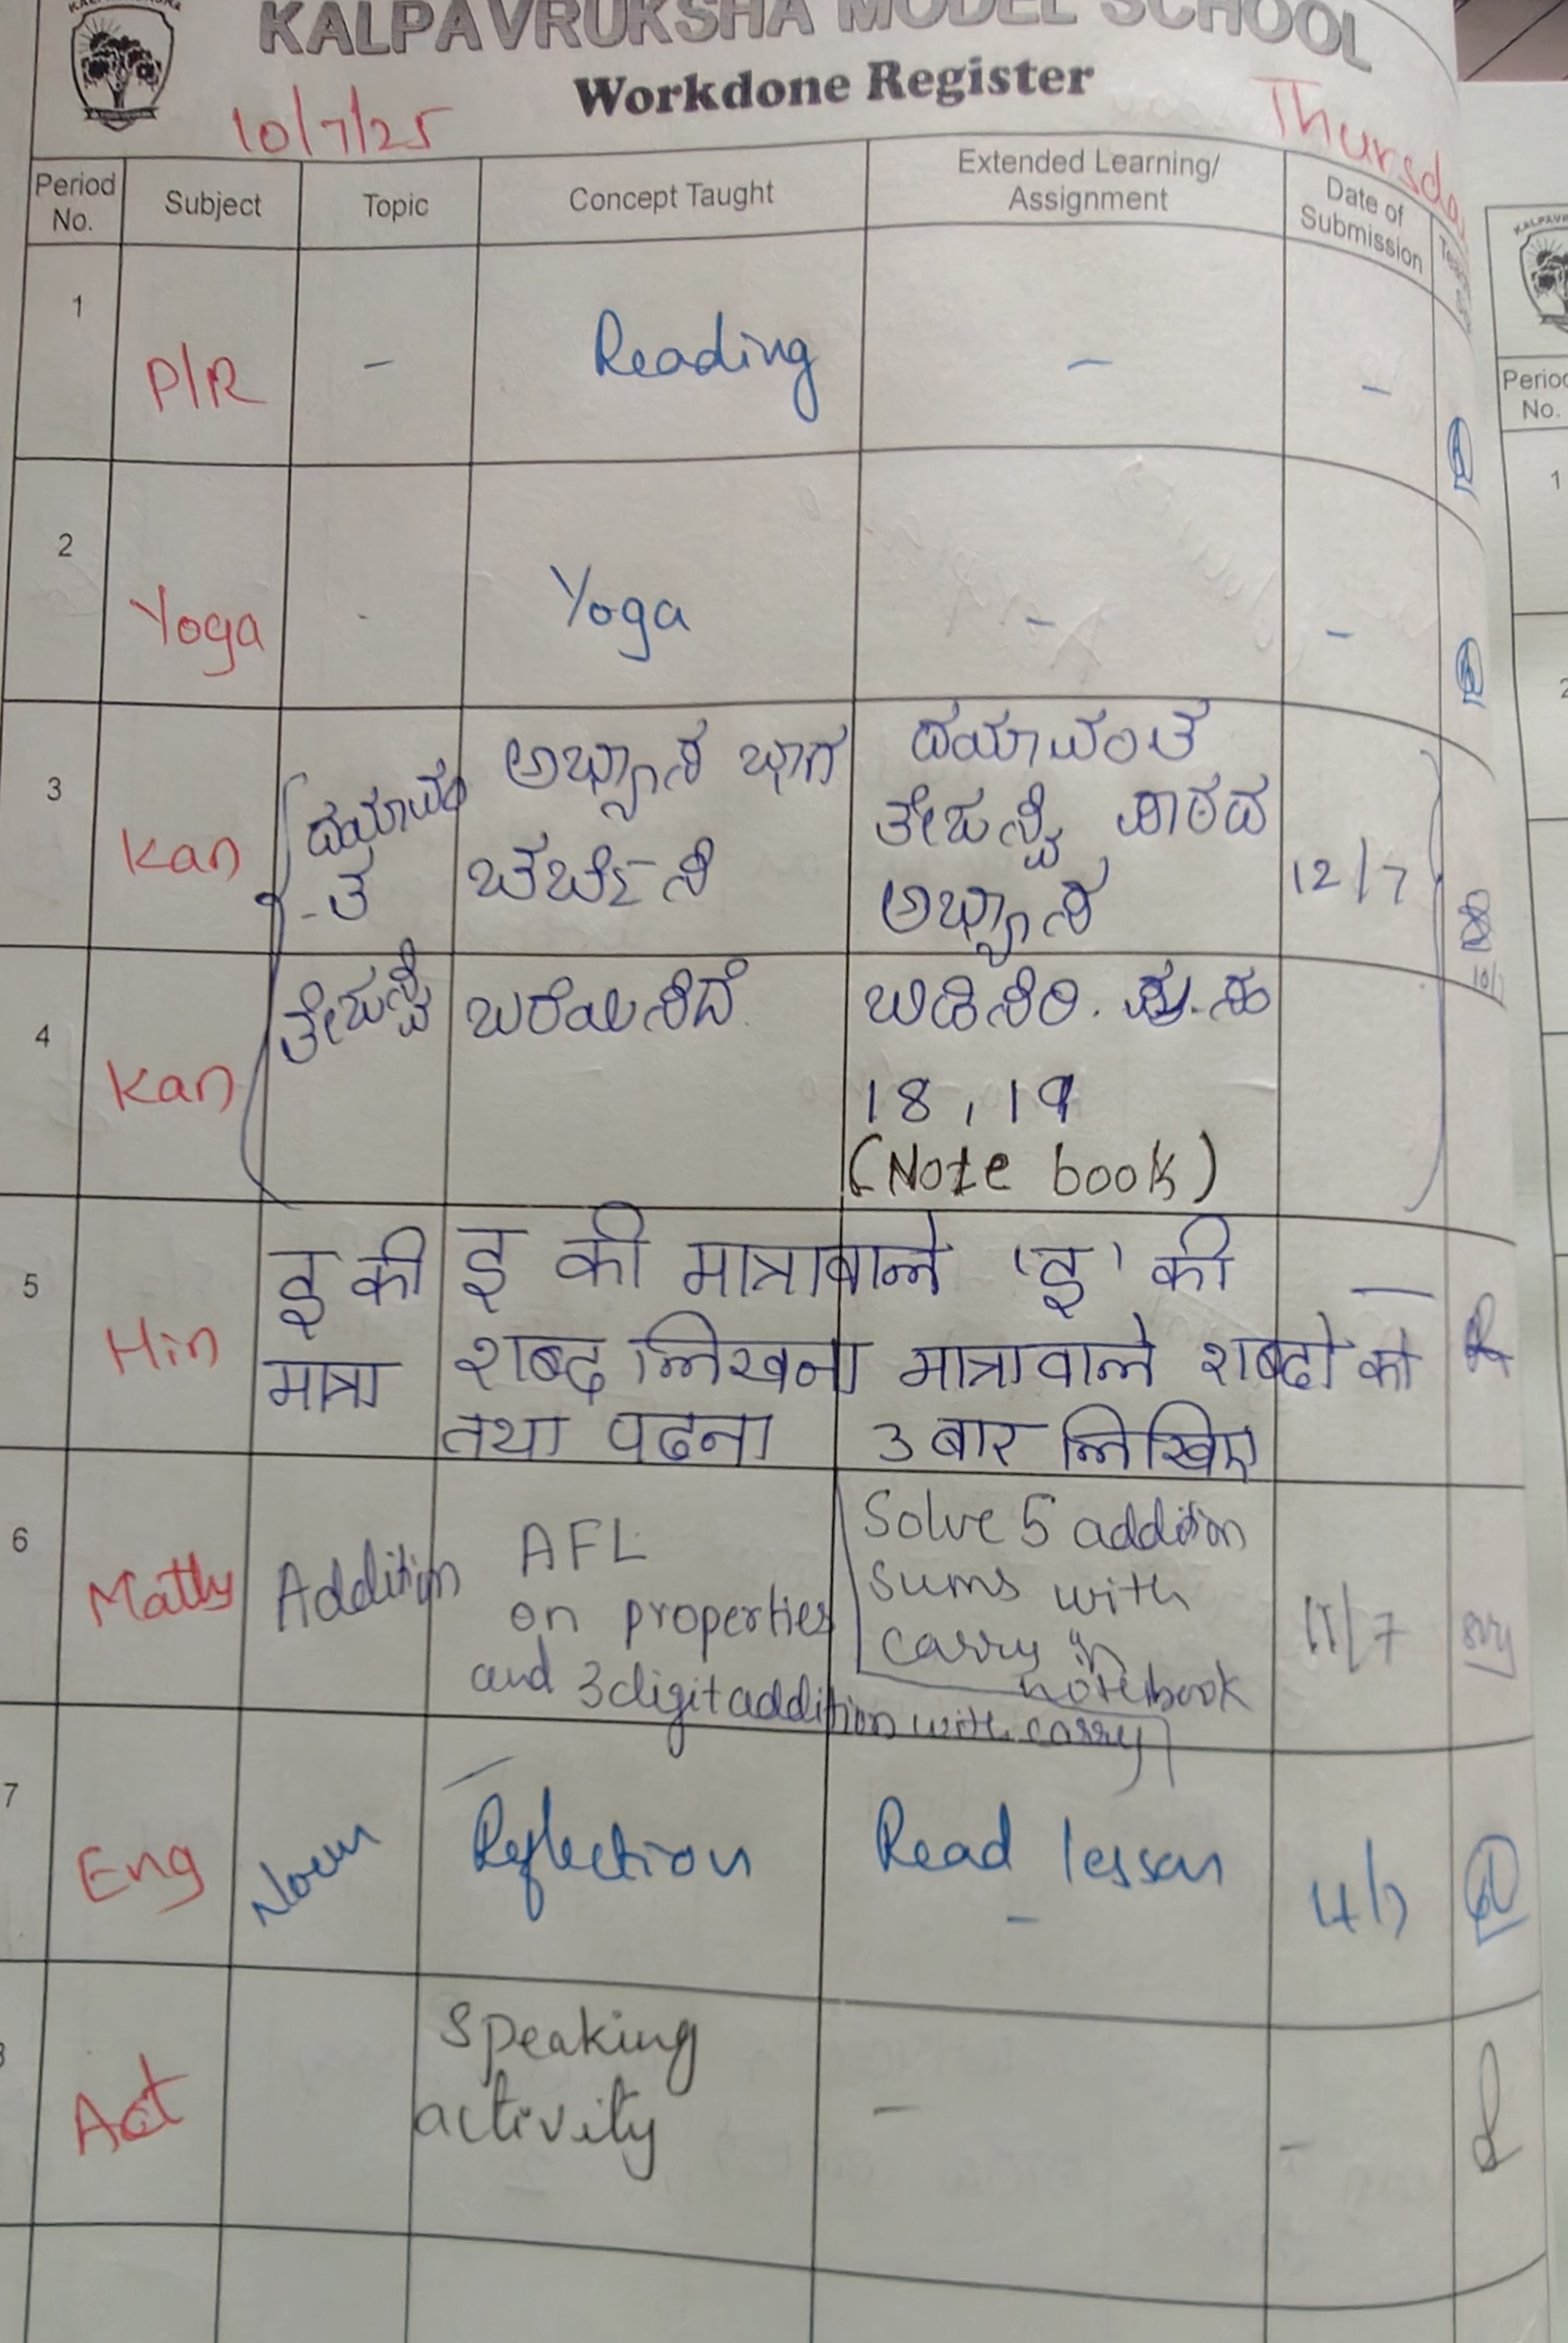 KALPAVRUKSHA MODEL SCHOOL
Workdone Register
10/7/25
Thursda
Period No.
Subject
Topic
Concept Taught
Extended Learning/
Assignment
Date of
Submission
1
P/R
-
Reading
-
-
2
Yoga
-
Yoga
-
-
3
Kan
ದಯಾವಂ
-ತ
ಅಭ್ಯಾಸ ಭಾಗ
ಚರ್ಚಿಸಿ
ದಯಾವಂತ
ತೇಜಸ್ವಿ ಪಾಠದ
ಅಭ್ಯಾಸ
12/7
4
Kan
ತೇಜಸ್ವಿ
ಬರೆಯಿಸಿದೆ.
ಬಿಡಿಸಿರಿ. ಪು.ಸಂ
18, 19
(Note book)
5
Hin
इ की
मात्रा
इ की मात्रावाले
शब्द लिखना
तथा पढना
'इ' की
मात्रावाले शब्दो को
3 बार लिखिए
—
6
Maths
Addition
AFL
on properties
and 3digit addition with carry
Solve 5 addition
sums with
carry in
notebook
11/7
7
Eng
Noun
Reflection
Read lesson
-
11/7
Act
Speaking
activity
-
-
Period
No.
1
2